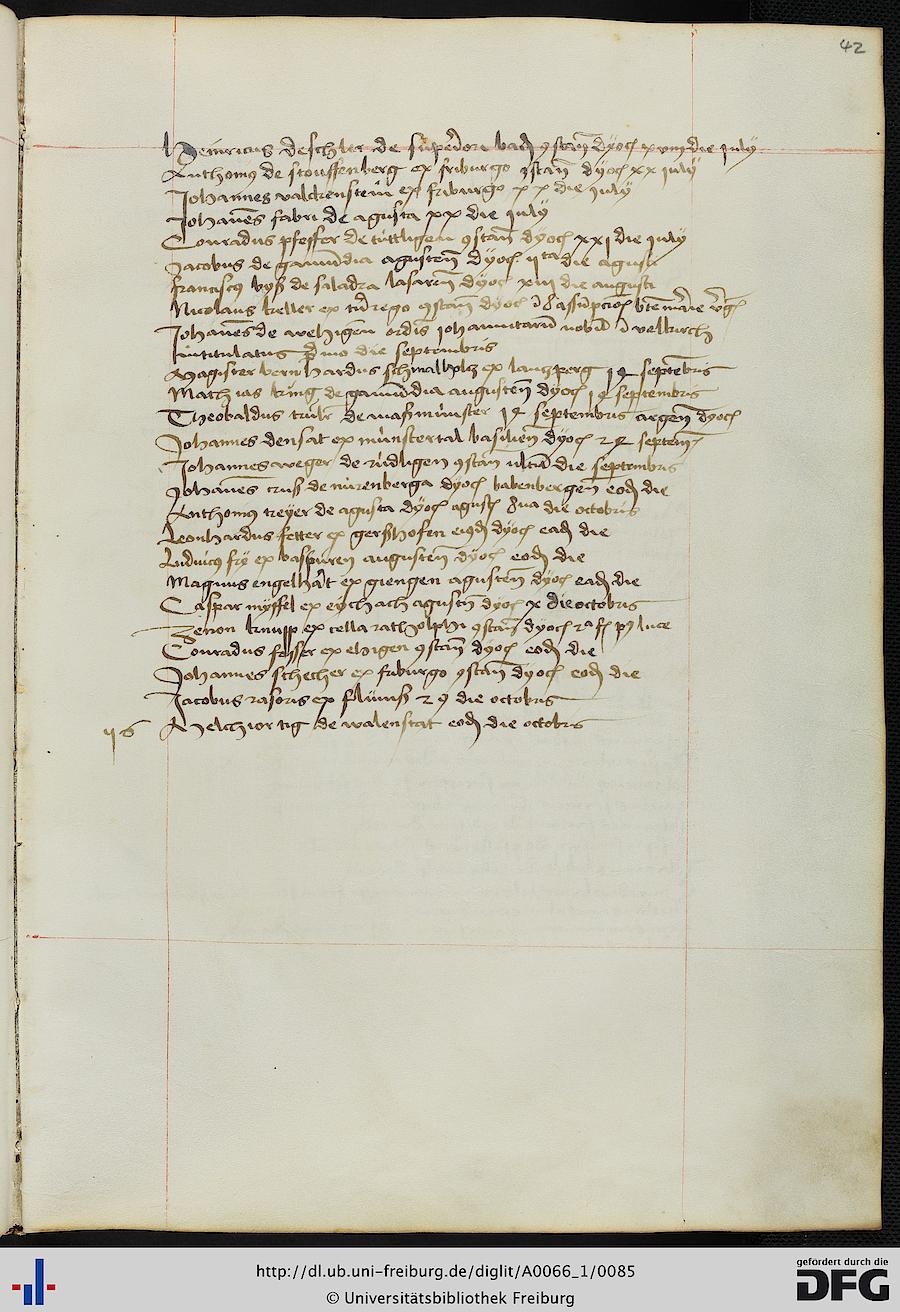 42
Heinricus deschler de superiori bad 9stan dyoc xviii die july
Anthonius de stouffenberg ex friburgo 9stan dyoc xx july
Johannes valckenstein ex friburgo x x die july
Johanes fabri de agusta xx die july
Conradus pfeffer de tuttlingen 9stan dyoc xxj die july
Jacobus de gamundia agusten dyoc ii ta die agusti
franciscus vyß de saladra lasaren dyoc xiii die augusti
Nicolaus keller ex 9stan dyoc
Johanes de wehigen ordis johannitaru velkirch
Intitulatus primo die septembris
Magister bernhardus schmalholtz ex lantzperg 14 septebris
Mathias kung de gamundia augusten dyoc 14 septembris
Theobaldus de maßmunster 14 septembris argen dyoc
Johannes densat ex munstertal basilien dyoc 24 septem
Johannes weger de rudligen 9stan ultia die septembris
Johanes cruß de nurenberga dyoc babenbergen eod die
Anthonius treyer de agusta dyoc agust 8ua die octobris
Leonhardus fetter ex gerßhofen eiusd dyoc ead die
Ludvicus fry ex augusten dyoc eod die
Magnus engelhart ex giengen agusten dyoc ead die
Caspar myffel ex eychach agustn dyoc x die octobris
Zenon knupp ex cella ratholphi 9stan dyoc luce
Conradus fesser ex ehigen 9stan dyoc eod die
Johannes schecher ex friburgo 9stan dyoc eod die
Jacobus rasoris ex flumß die octobris
76 Melchior tig de walenstat eod die octobris
http://dl.ub.uni-freiburg.de/diglit/A0066_1/0085
© Universitätsbibliothek Freiburg
gefördert durch die
DFG